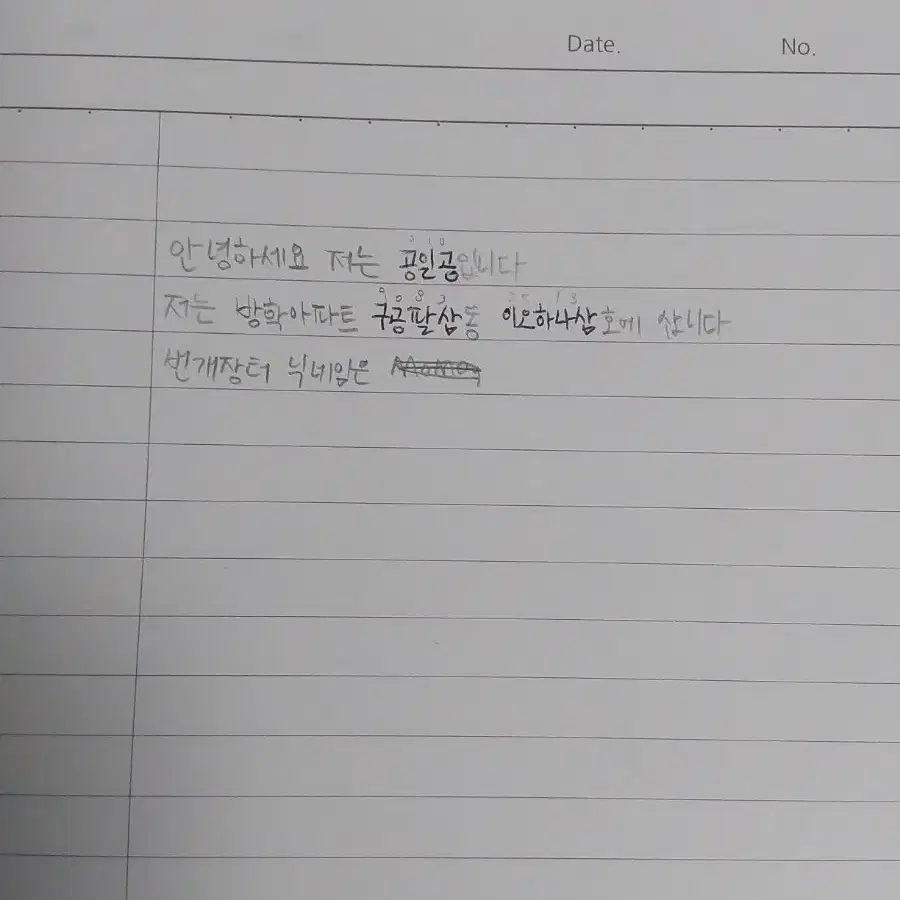 Date. No.
안녕하세요 저는 공일공입니다
0 1 0
저는 방학아파트 구공팔삼동 이오하나삼호에 삽니다
9 0 8 3 2 5 1 3
번개장터 닉네임은